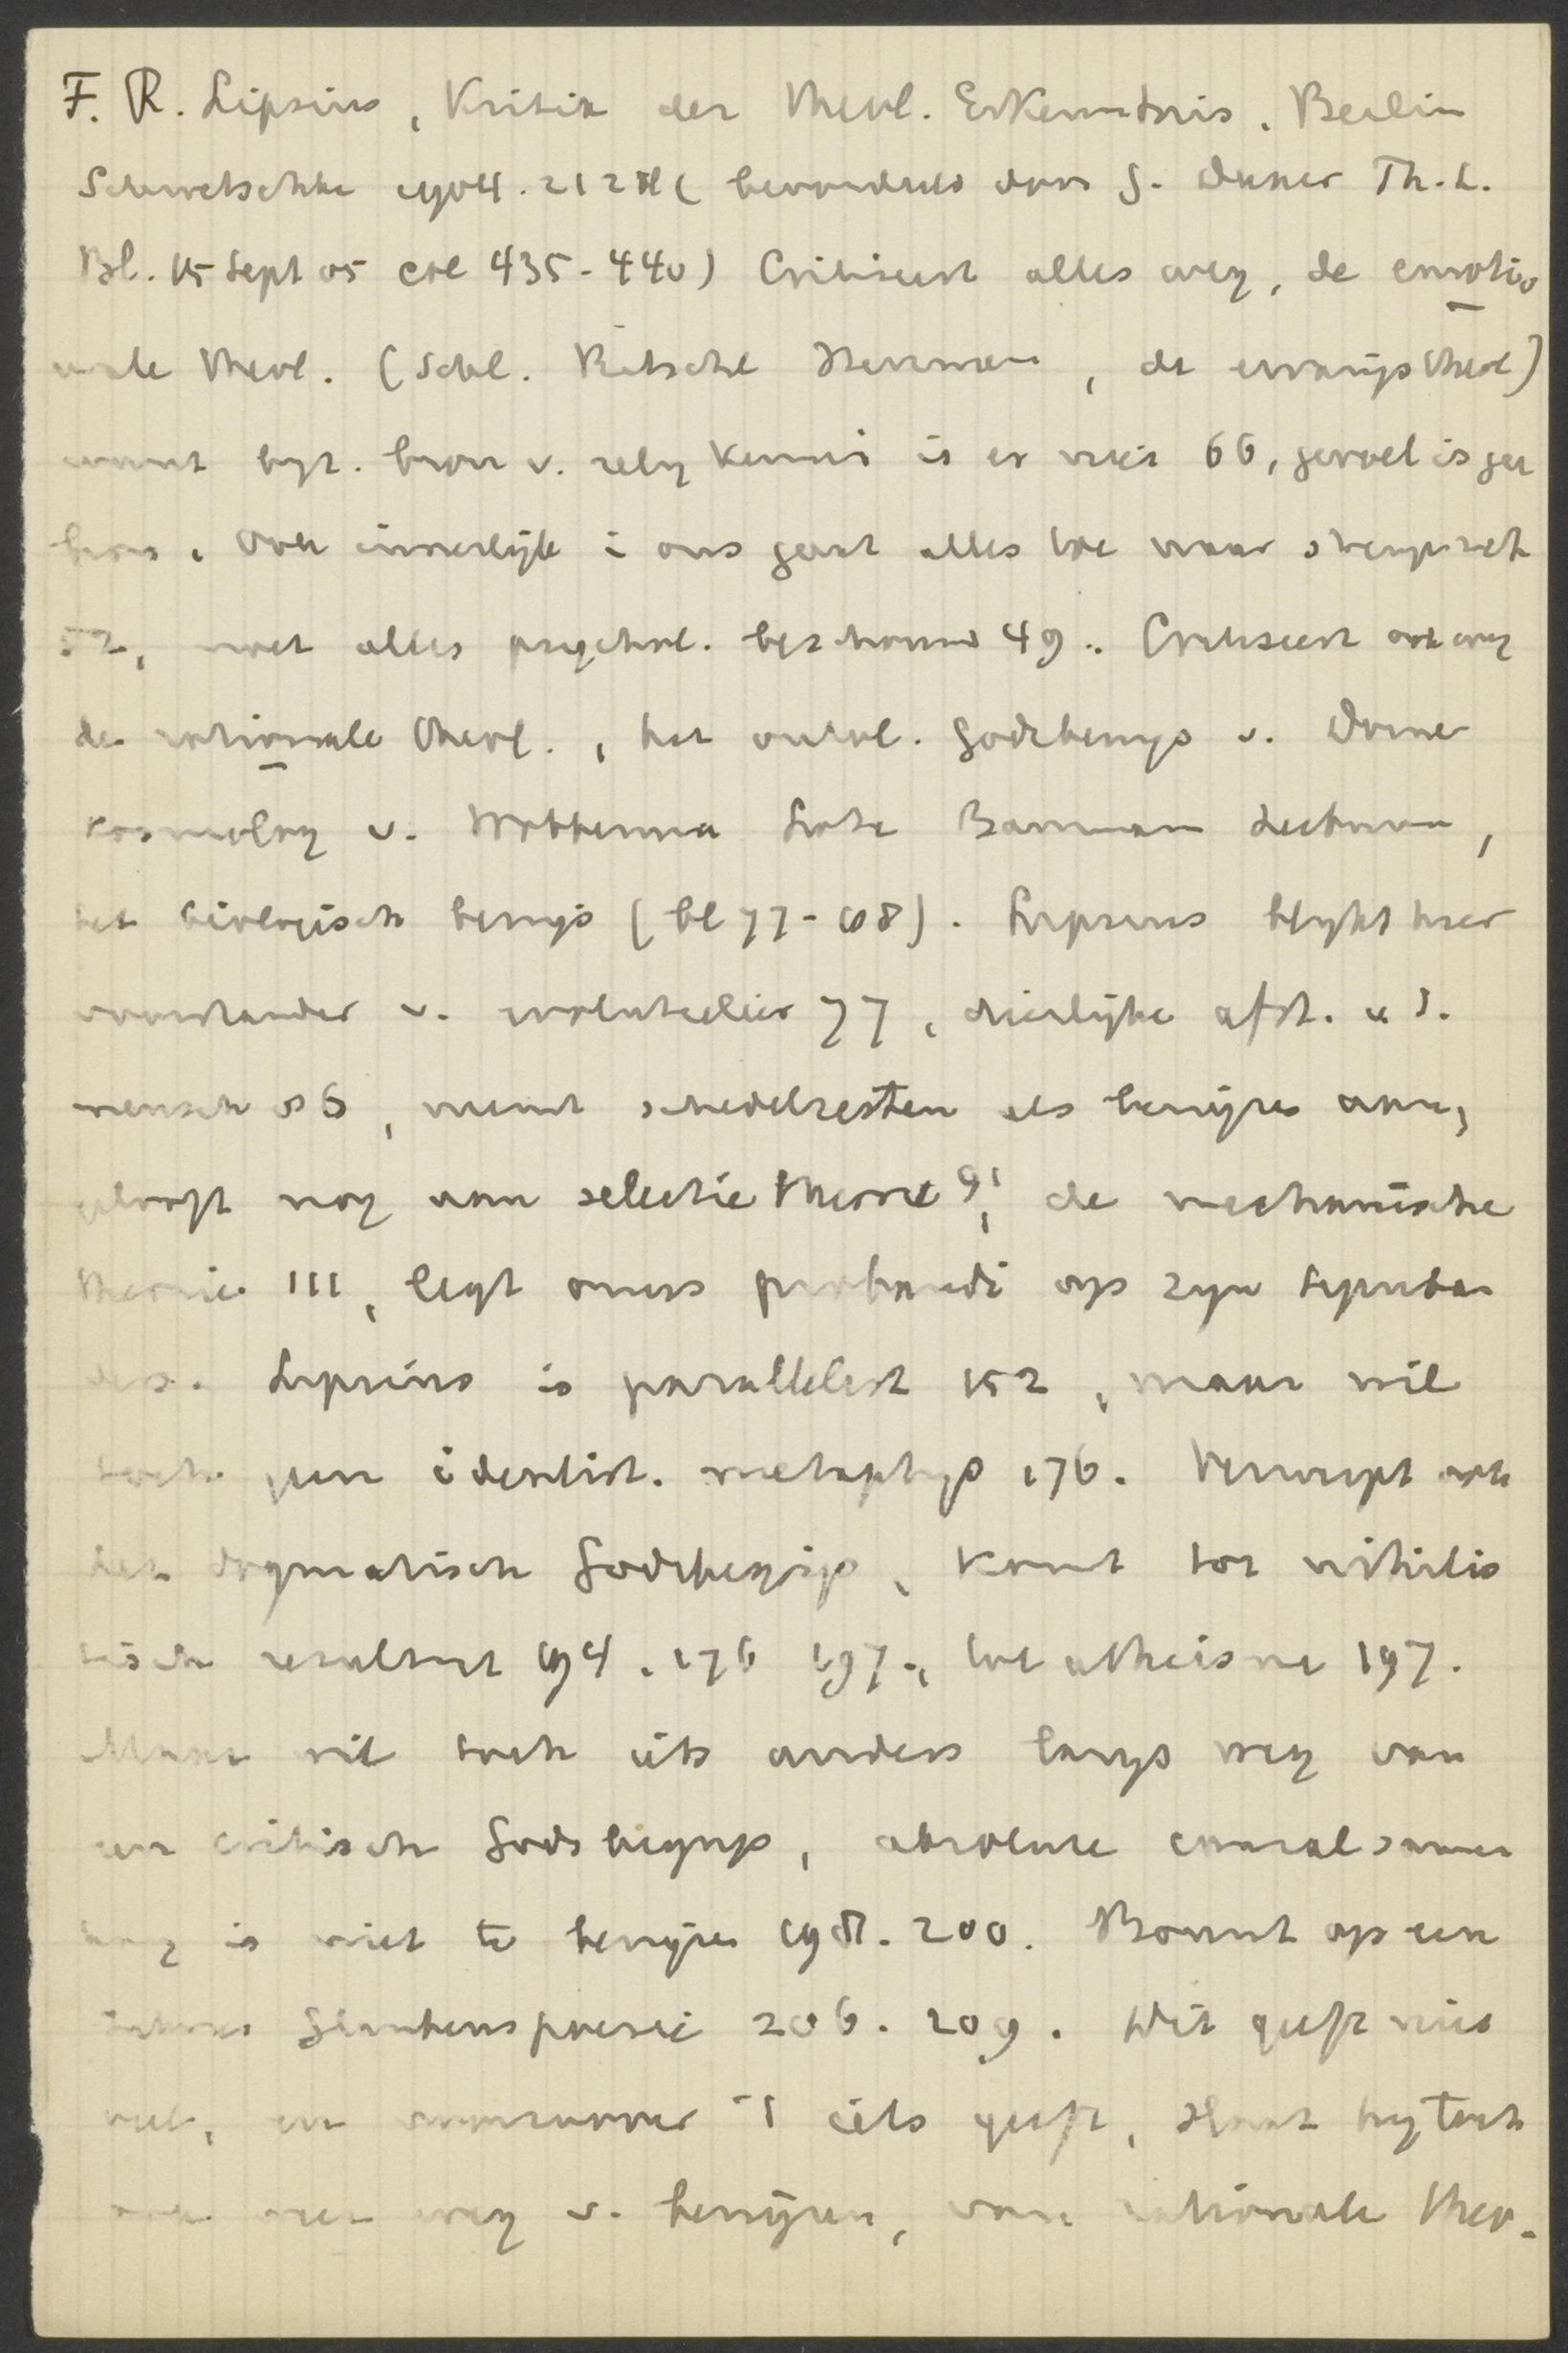 F. R. Lipsius, Kritik der theol. Erkenntnis. Berlin
Schwetschke 1904. 212 M ( beoordeeld door G. Daxer Th. L.
Bl. 15 Sept 05 col 435-440) Critiseert alles weg, de emotio
nale theol. (Schl. Ritschl Herrmann, de ervaringstheol)
want byz. bron v. relig kennis is er niet 66, gevoel is geen
bron. Ook innerlijk i ons gaat alles toe naar
52, moet alles psychol. beschouwd 49. Critiseert ook weg
de rationale theol., het ontol. Godsbewijs v. Dorner
kosmolog v. Wobbermin Lotze Baumann
het biologisch bewijs (bl 77-108). Lipsius blijkt hier
voorstander v. evolutieleer 77, dierlijke afst. v d.
mensch 86, neemt schedelresten als bewijzen aan,
gelooft nog aan selectie theorie 91, de mechanische
theorie 111, legt onus probandi op zijn
Lipsius is parallelist 152, maar wil
toch geen idealist. metaphys 176. Verwerpt ook
het dogmatisch Godsbegrip, komt tot nihilis
tisch resultaat 194. 176 197., tot atheisme 197.
Maar wil toch iets anders langs weg van
een critisch Godsbegrip, absolute causalsamen
hang is niet te bewijzen 198. 200. Bouwt op een
Glaubenspoesie 206. 209. Dit geeft niet
veel, en voorzoover 't iets geeft, staat hij toch
ook weer weg v. bewijzen, van rationale theo-